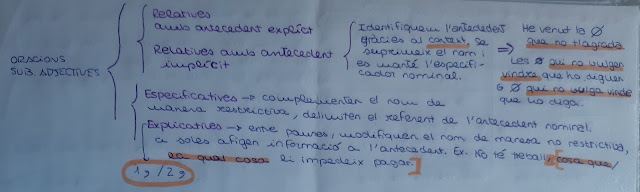 Relatives
amb antecedent explícit
Relatives amb antecedent
implícit
ORACIONS
SUB. ADJECTIVES
Identifiquem l'antecedent
gràcies al context, se
suprimeix el nom i
es manté l'especifi-
cador nominal.
⇒
He venut la ∅
que no t'agrada
Les ∅ qui no vulgen
vindre que ho diguen
∅ qui no vulga vindre
que ho diga.
Especificatives → complementen el nom de
manera restrictiva, delimiten el referent de l'antecedent nominal.
Explicatives → entre pauses, modifiquen el nom de manera no restrictiva,
a soles afigen informació a l'antecedent. Ex. No té treball, [cosa que/
la qual cosa li impedeix pagar.]
1ª/2ª